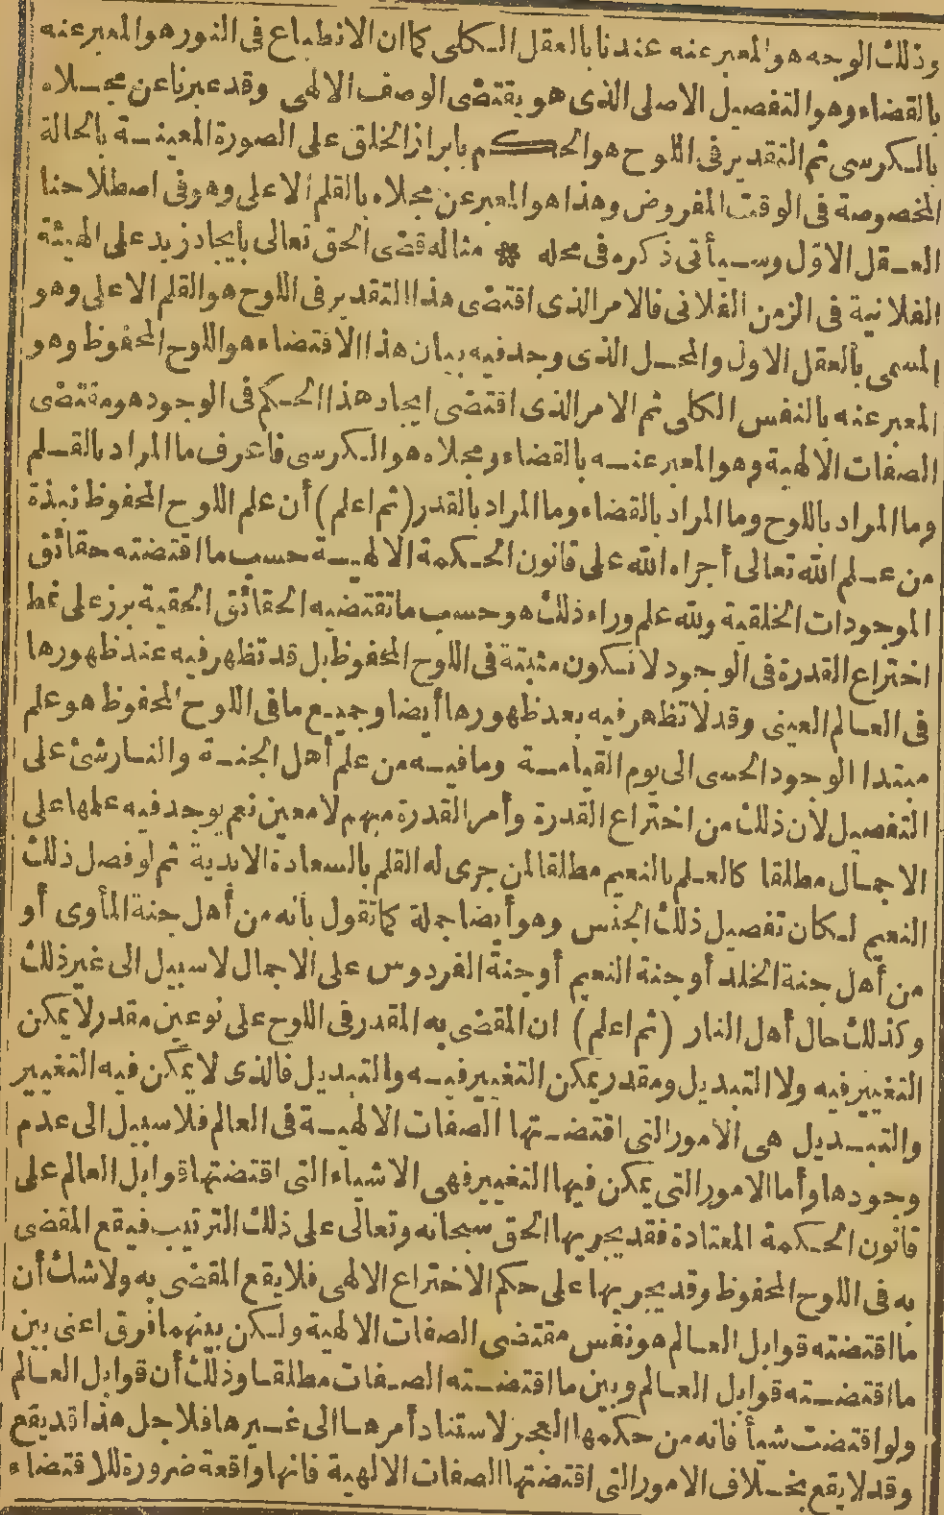 وذلك الوجه هو المعبر عنه عندنا بالعقل الكلى كما ان الانطباع فى النور هو المعبر عنه
بالقضاء وهو التفصيل الاصلى الذى هو يقتضى الوصف الالهى وقد عبرنا عن مجلاه
بالكرسى ثم التقدير فى اللوح هو الحكم بابراز الخلق على الصورة المعينة بالحالة
المخصوصة فى الوقت المفروض وهذا هو المعبر عن مجلاه بالقلم الاعلى وهو فى اصطلاحنا
العقل الاول وسيأتى ذكره فى محله * مثاله قضى الحق تعالى بايجاد زيد على الهيئة
الفلانية فى الزمن الفلانى فالامر الذى اقتضى هذا التقدير فى اللوح هو القلم الاعلى وهو
المسمى بالعقل الاول والمحل الذى وجد فيه بيان هذا الاقتضاء هو اللوح المحفوظ وهو
المعبر عنه بالنفس الكلى ثم الامر الذى اقتضى ايجاد هذا الحكم فى الوجود هو مقتضى
الصفات الالهية وهو المعبر عنه بالقضاء ومجلاه هو الكرسى فاعرف ما المراد بالقلم
وما المراد باللوح وما المراد بالقضاء وما المراد بالقدر (ثم اعلم) أن علم اللوح المحفوظ نبذة
من علم الله تعالى أجراه الله على قانون الحكمة الالهية حسب ما اقتضته حقائق
الموجودات الخلقية ولله علم وراء ذلك هو حسب ما تقتضيه الحقائق الحقية برز على نمط
اختراع القدرة فى الوجود لا تكون مثبتة فى اللوح المحفوظ بل قد تظهر فيه عند ظهورها
فى العالم العينى وقد لا تظهر فيه بعد ظهورها أيضا وجميع ما فى اللوح المحفوظ هو علم
مبتدا الوجود الحسى الى يوم القيامة وما فيه من علم أهل الجنة والنار شئ على
التفصيل لأن ذلك من اختراع القدرة وأمر القدرة مبهم لا معين نعم يوجد فيه علمها على
الاجمال مطلقا كالعلم بالنعيم مطلقا لمن جرى له القلم بالسعادة الابدية ثم لو فصل ذلك
النعيم لكان تفصيل ذلك الجنس وهو أيضا جملة كما تقول بانه من أهل جنة المأوى أو
من أهل جنة الخلد أو جنة النعيم أو جنة الفردوس على الاجمال لا سبيل الى غير ذلك
وكذلك حال أهل النار (ثم اعلم) ان المقضى به المقدر فى اللوح على نوعين مقدر لا يمكن
التغيير فيه ولا التبديل ومقدر يمكن التغيير فيه والتبديل فالذى لا يمكن فيه التغيير
والتبديل هى الامور التى اقتضتها الصفات الالهية فى العالم فلا سبيل الى عدم
وجودها وأما الامور التى يمكن فيها التغيير فهى الاشياء التى اقتضتها قوابل العالم على
قانون الحكمة المعتادة فقد يجريها الحق سبحانه وتعالى على ذلك الترتيب فيقع المقضى
به فى اللوح المحفوظ وقد يجريها على حكم الاختراع الالهى فلا يقع المقضى به ولا شك أن
ما اقتضته قوابل العالم هو نفس مقتضى الصفات الالهية ولكن بينهما فرق اعنى بين
ما اقتضته قوابل العالم وبين ما اقتضته الصفات مطلقا وذلك أن قوابل العالم
ولو اقتضت شيأ فانه من حكمها العجز لاستناد أمرها الى غيرها فلاجل هذا قد يقع
وقد لا يقع بخلاف الامور التى اقتضتها الصفات الالهية فانها واقعة ضرورة للاقتضاء